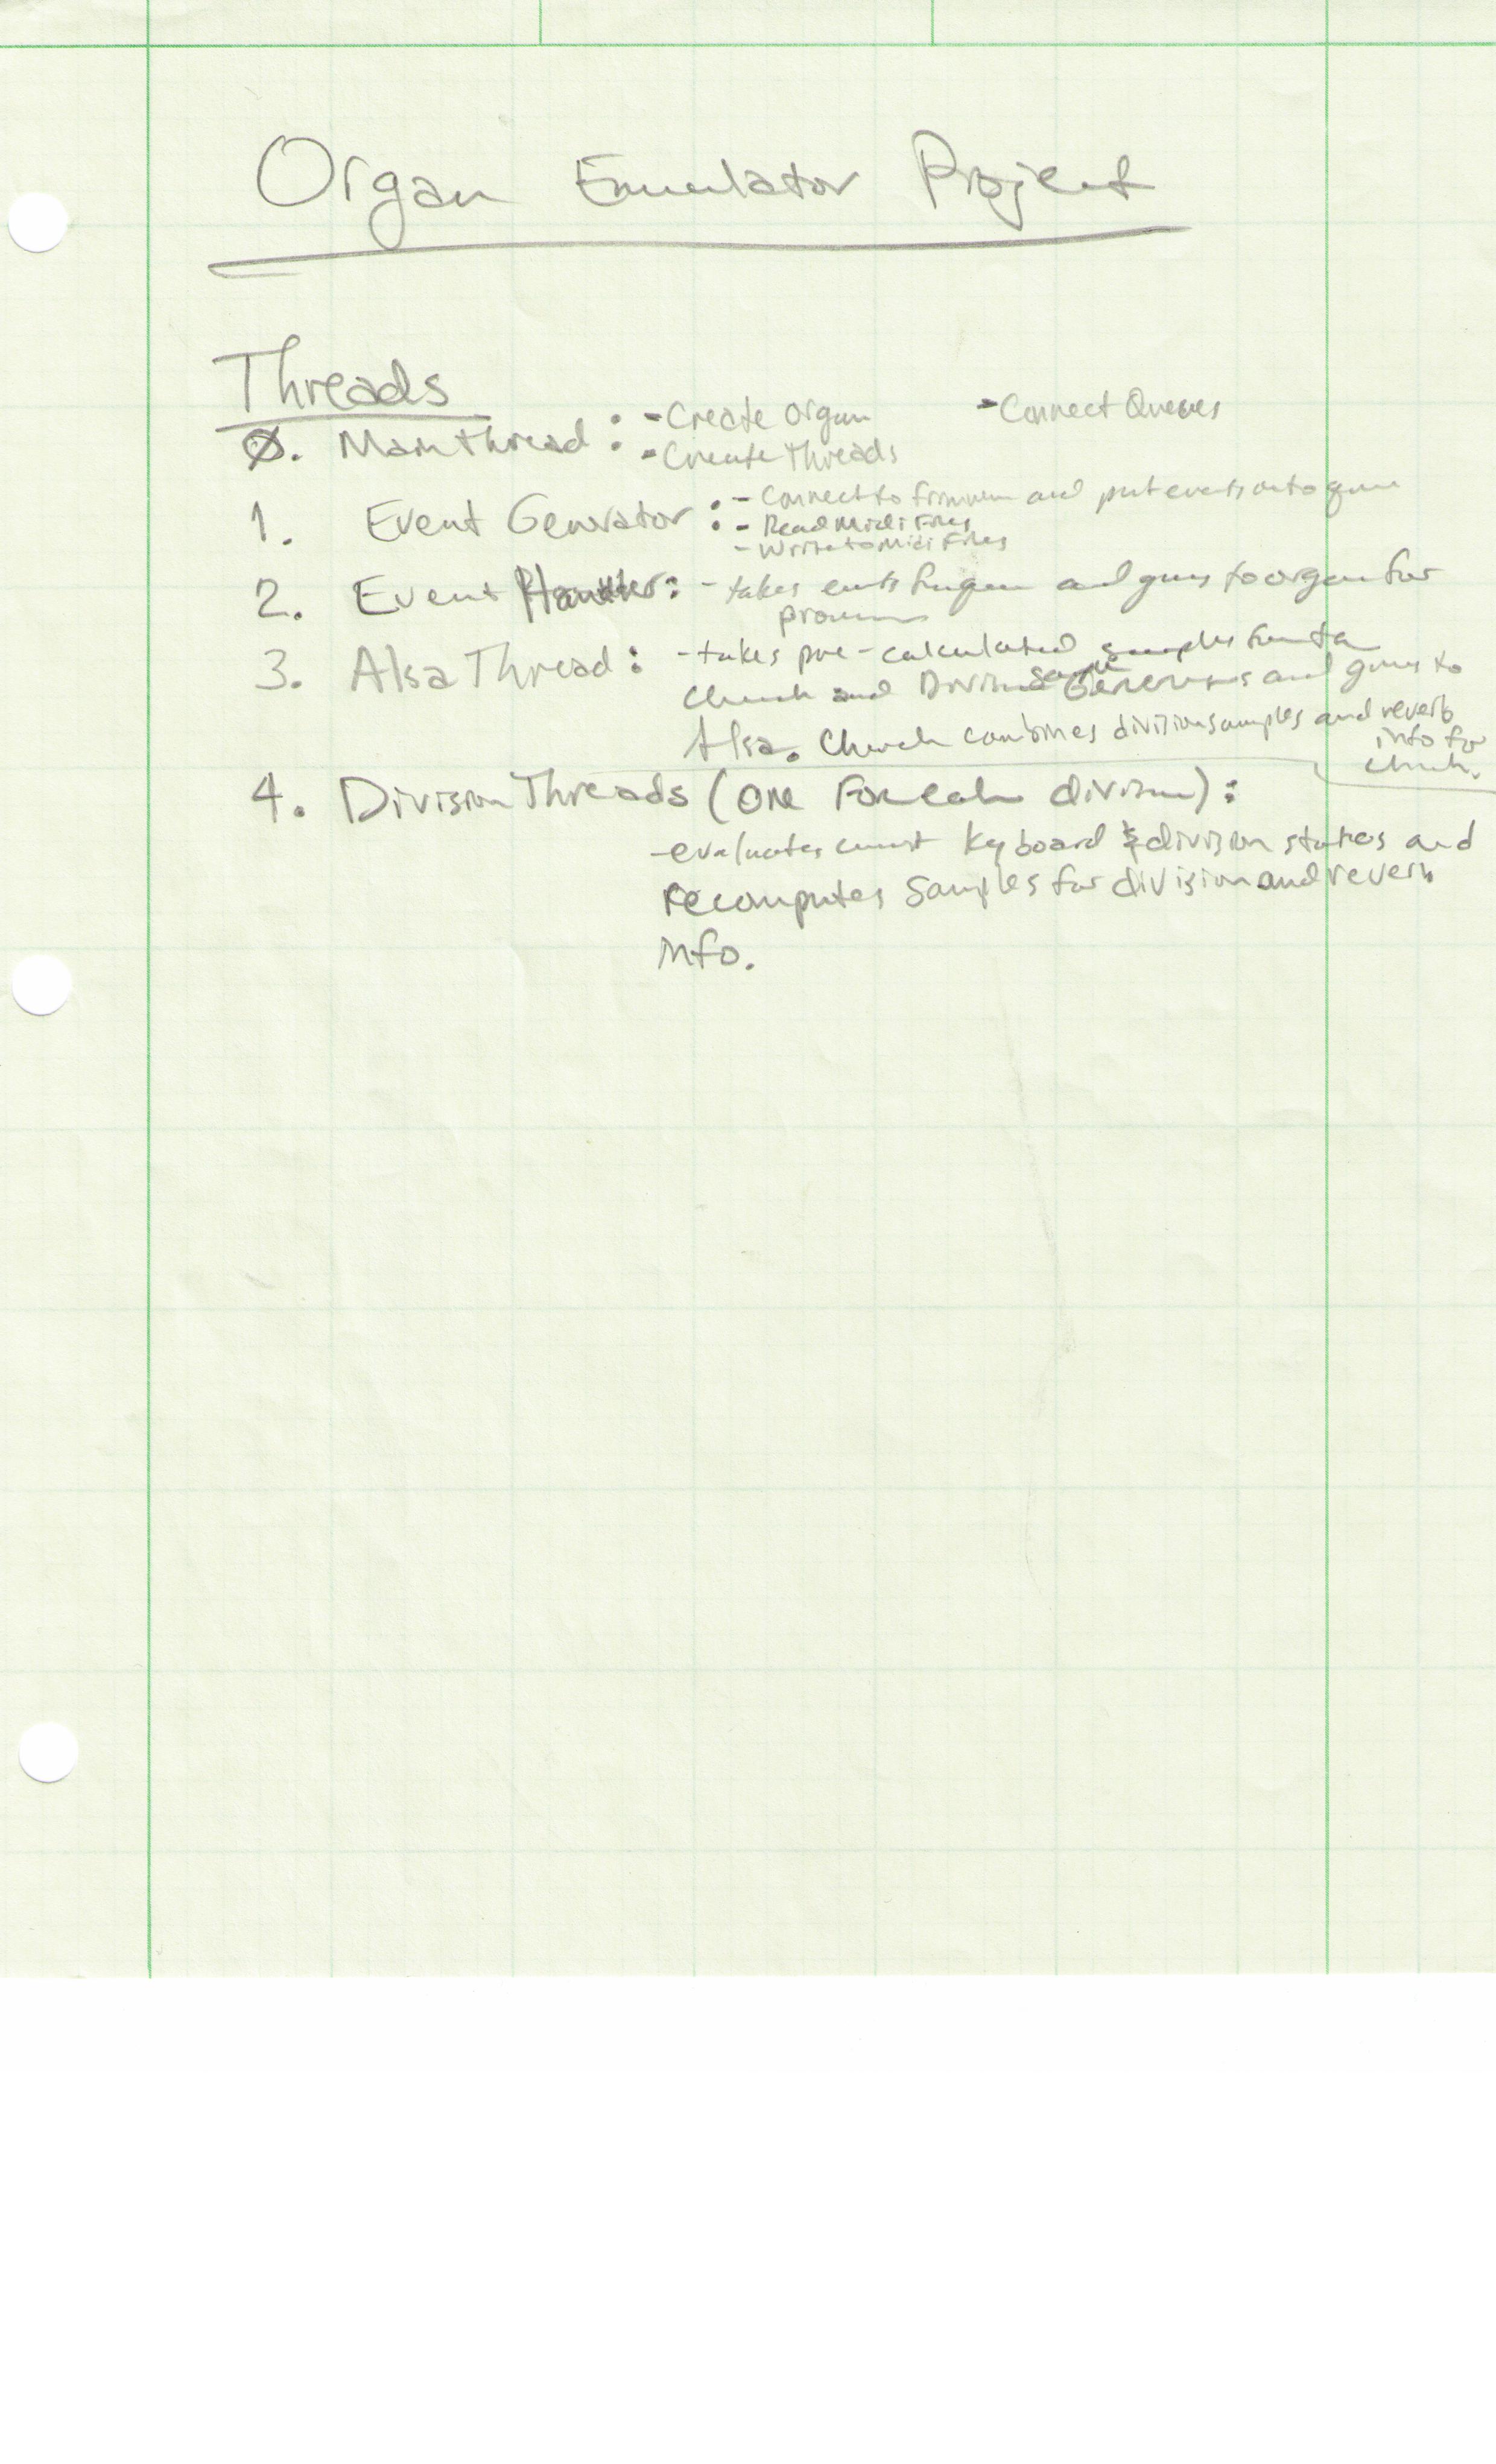 Organ Emulator Project
Threads
0. Main thread : - Create Organ - Connect Queues
- Create Threads
1. Event Generator : - Connect to and put events onto queue
- Read Midi Files
- Write to Midi Files
2. Event Handler: - takes and gives to organ for
3. Alsa Thread: - takes pre-calculated samples from the
Church and Division Sample Generators and gives to
Alsa. Church combines division samples and reverb
info for
church.
4. Division Threads (One For each division):
- evaluates current keyboard & division states and
recomputes samples for division and reverb
info.